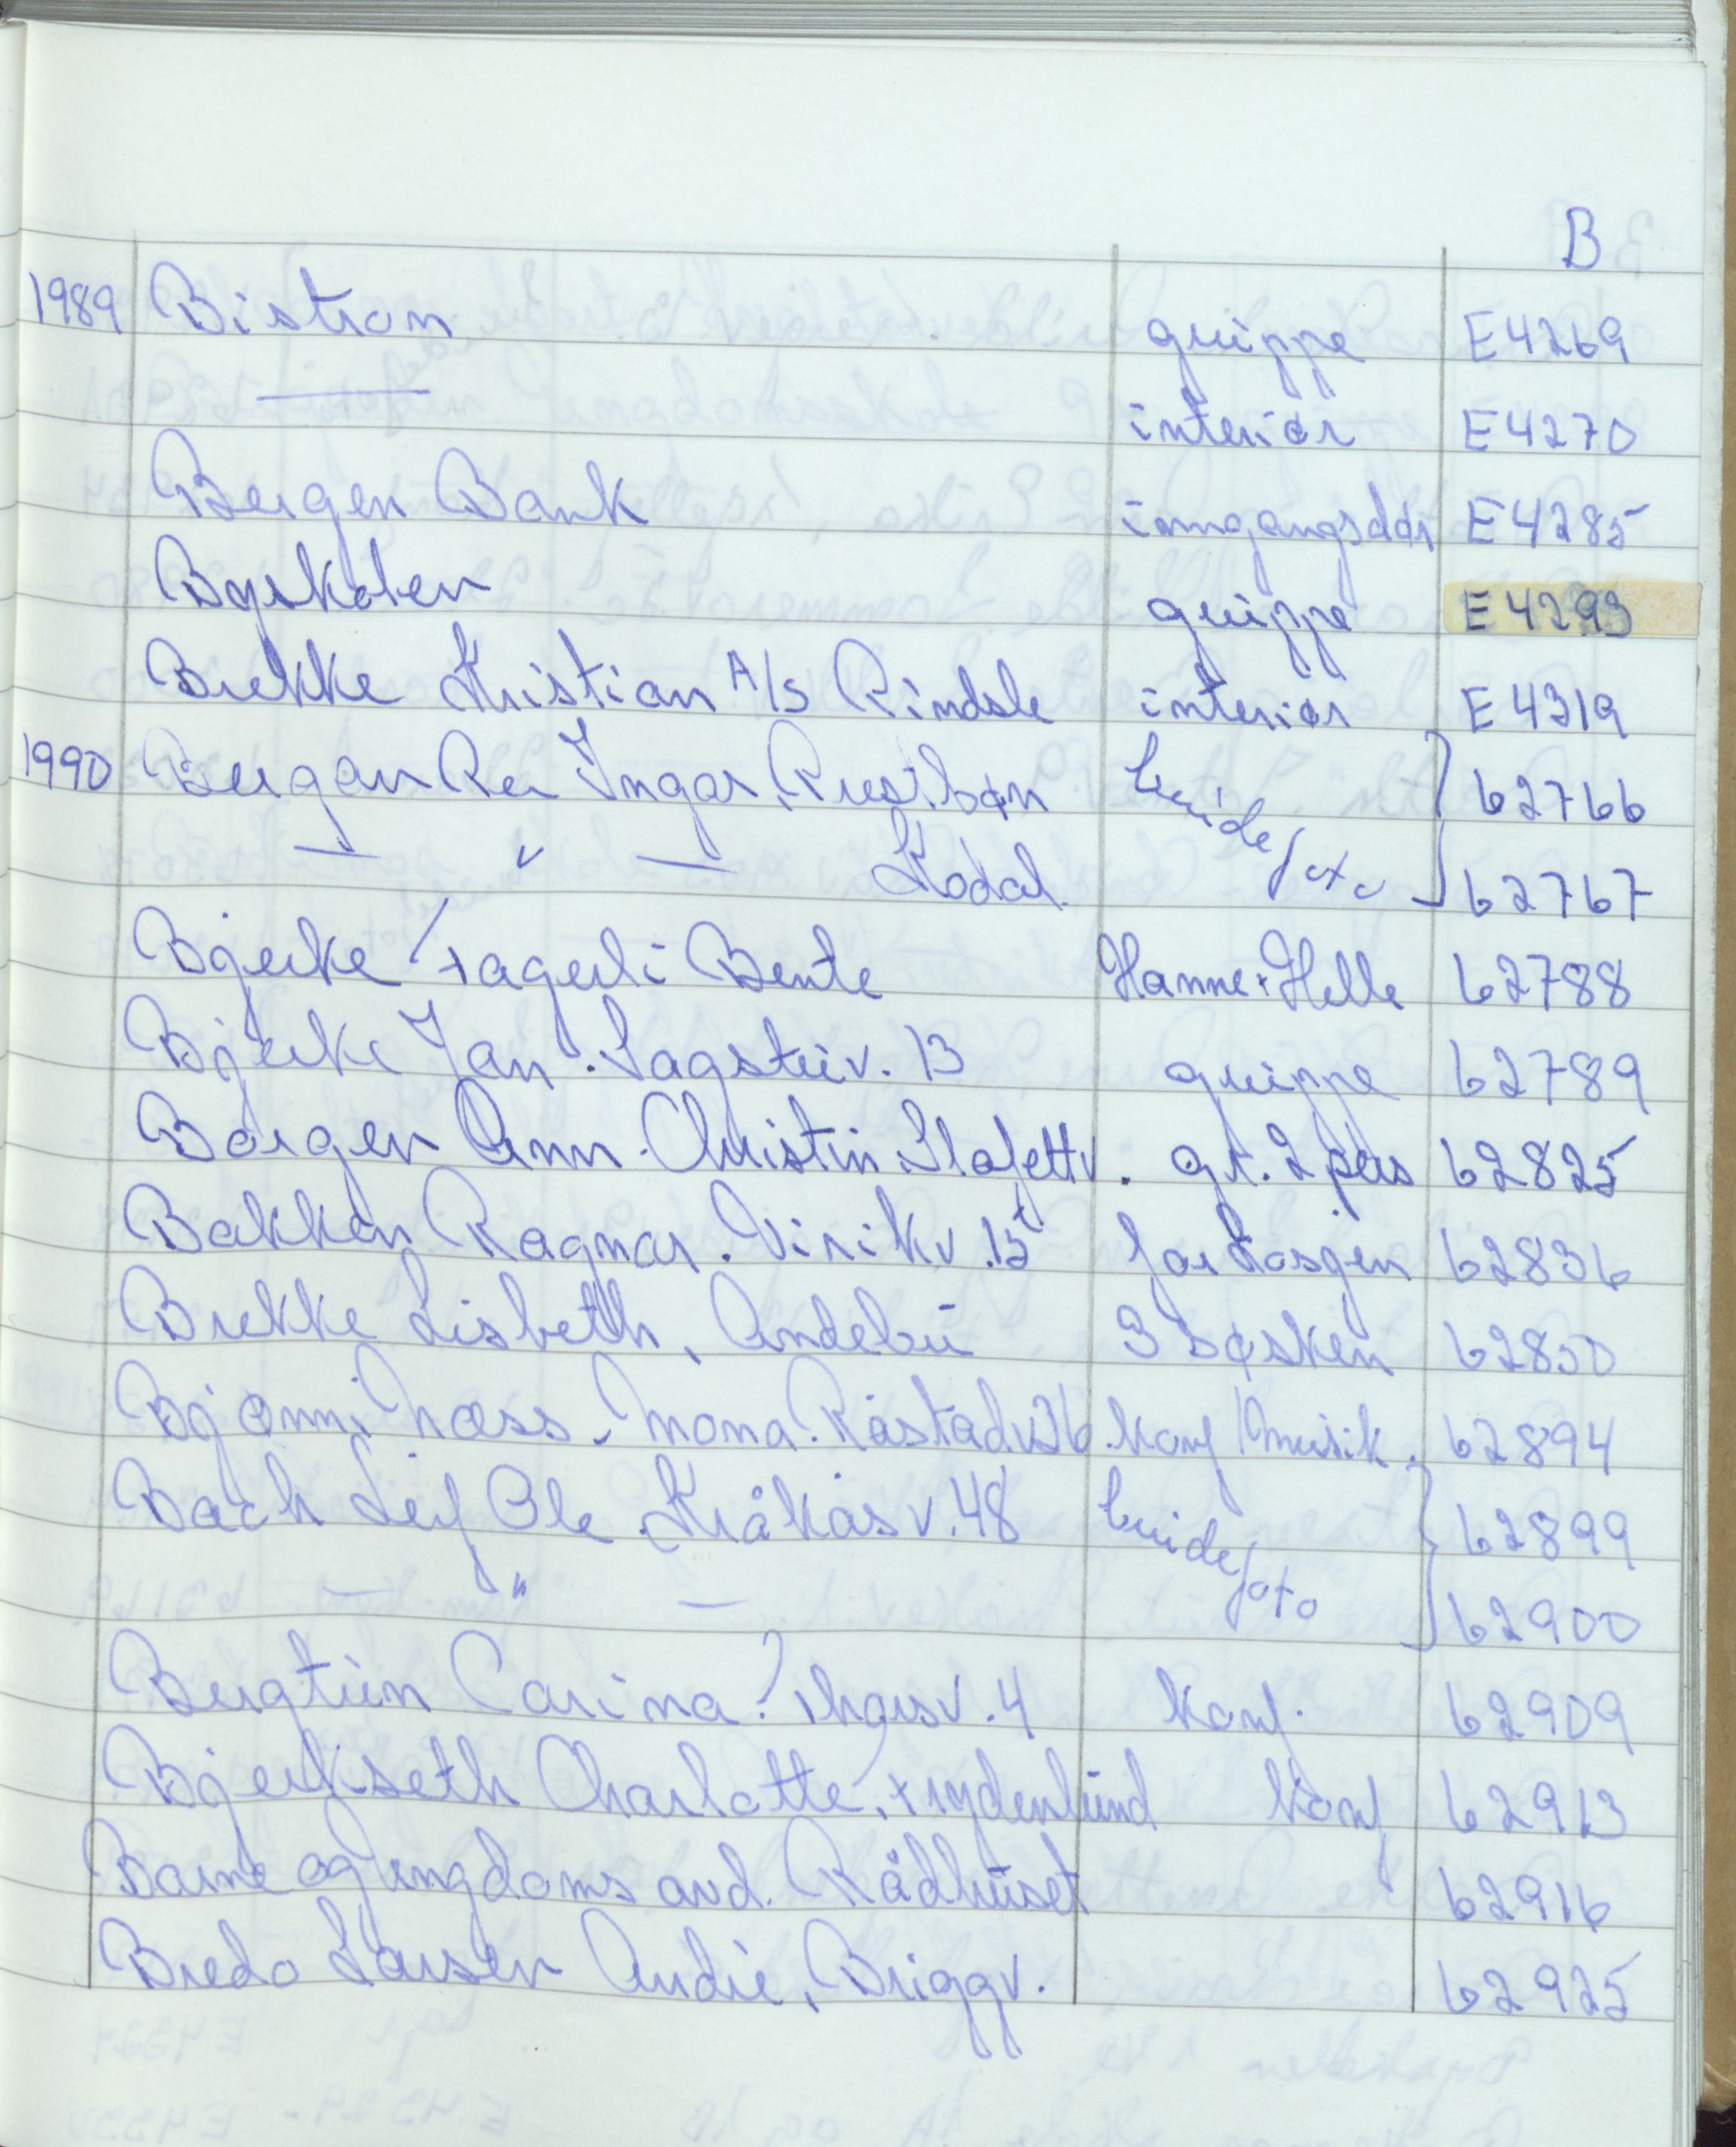 B
1989 Bistroen gruppe E4269
—— interiør E4270
Bergen Bank inngangsdør E4285
Byskolen gruppe E4293
Brekke Kristian A/S Rindsle interiør E4319
1990 Bergan Per Ingar, Prestbøn brude/foto 62766
— " — Kodal 62767
Bjerke Fagerli Bente Hanne + Helle 62788
Bjerke Jan. Lagsteiv. 13 gruppe 62789
Borgen Ann-Christin. Stafettv. gr. 2 pers 62825
Bakken Ragnar. Virikv. 13 Jon Kosgen 62836
Brekke Lisbeth, Andebu 3 søsken 62850
Bjønnnes Mona. Råstadv. 36 konf/musik. 62894
Bach Leif Ole. Kråkåsv. 48 brude/foto 62899
— " — 62900
Bergtun Carina. Thorsv. 4 konf. 62909
Bjerkseth Charlotte, Frydenlund konf 62913
Barne og Ungdoms avd. Rådhuset 62916
Bredo Larsen Audie, Briggv. 62925